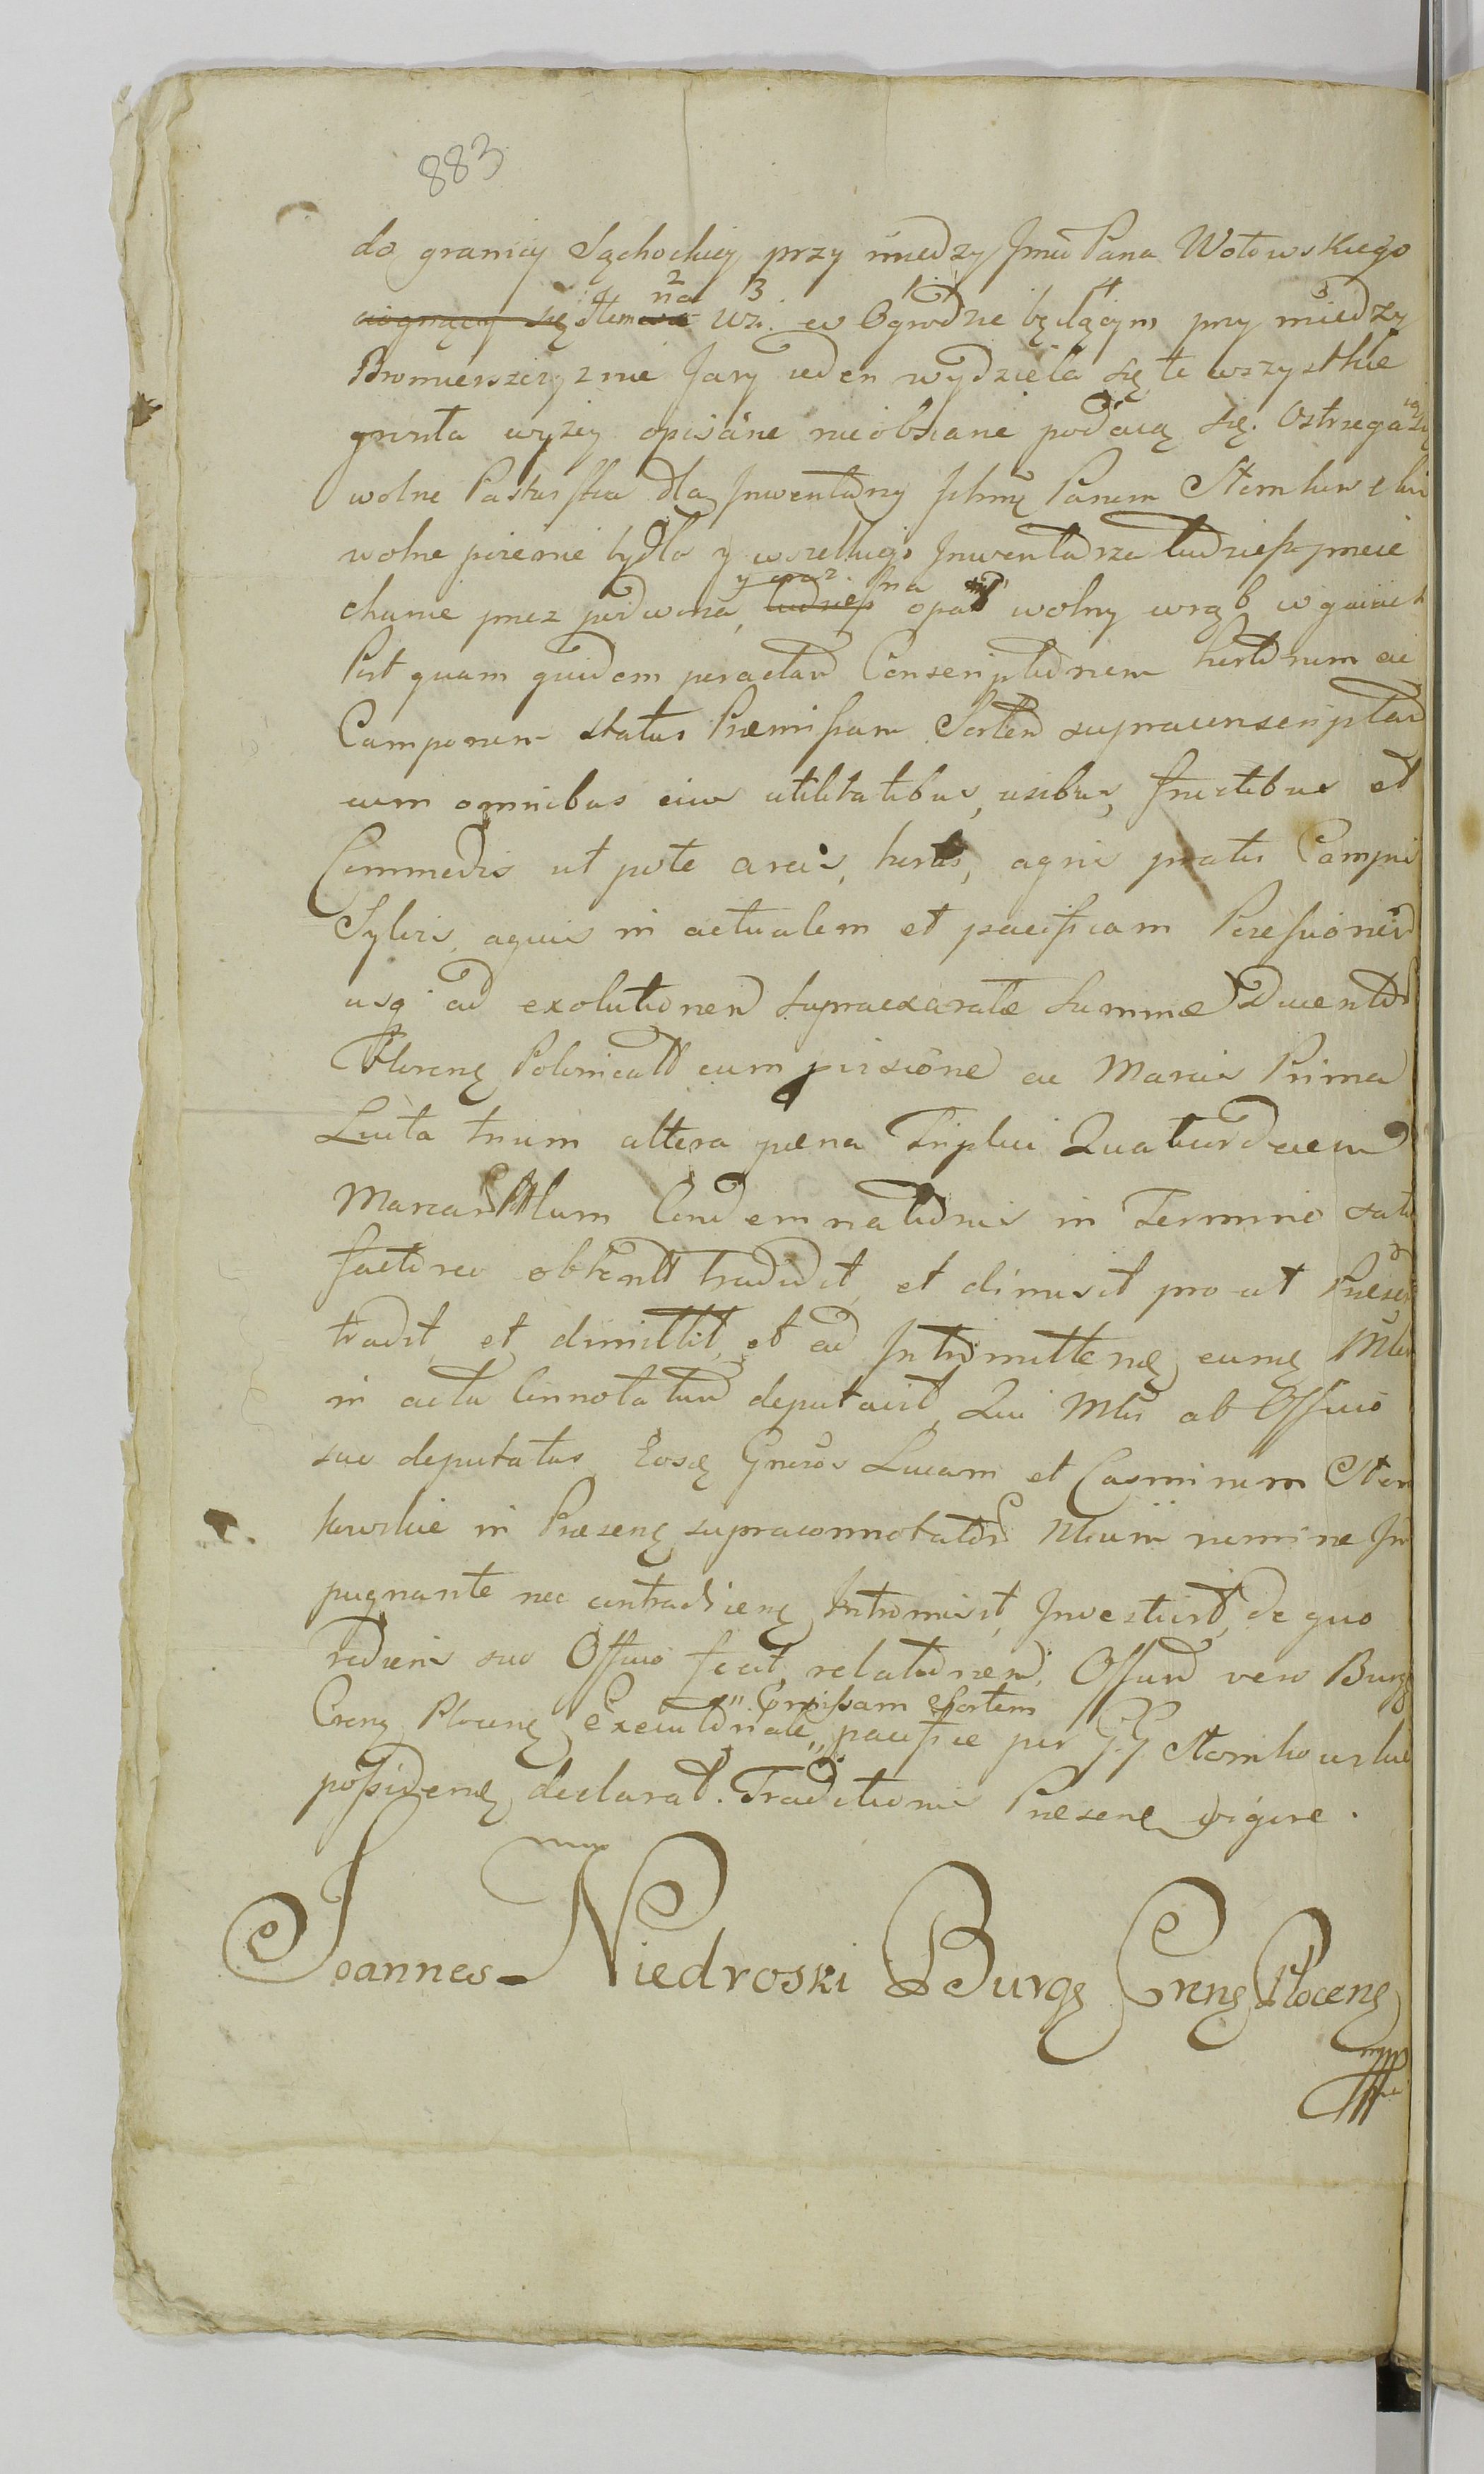 883
do granicy Sąchockiey przy miedzy Jmci Pana Wołowskiego
ciągnący się Item na wsi w Ogrodzie będącym przy miedzy
Bromierszczyznie Jary ieden wydziela się te wszystkie
grunta wyżey opisane nieobsiane podaią się. Ostrzega się
wolne Pastwiska dla Inwentarzy Ichmę Panom Stemkowski
wolne poienie bydła y wszelkiego Inwentarza tudzież przeie
chanie przez podworza, tudziesz y oraz na opał wolny wrąb w gaiach
Post quam quidem peractam Conscriptionem hortorum ac
Camporum status Præmissam Sortem supraconscriptam
cum omnibus eius utilitatibus, usibus, fructibus et
Commodis ut pote areis, hortis, agris pratis Campis
Sylvis, aquis in actualem et pacificam Possessionem
usq ad exolutionem supraexaratæ Summæ Ducentor
Florenę Polonicall cum provisione ac Marcis Prima
Lucta trium altera pæna Triplici Quatuordecim
Marcar Pltlum Condemnationis in Termino satis
factorio obtent tradidit, et dimisit pro ut Præsen
tradit et dimittit, et ad Intromittenę eumę Mlem
in actu Connotatum deputavit, Qui Mlis ab Officio
suo deputatus Eosdę Gnrosos Lucam et Casimirum Stem
kowskie in Præsenę supraconnotator Nblium nemine Im
pugnante nec contradicenę Intromisit, Investivit, de quo
rediens suo Officio fecit relationem, Officium vero Burgę
Crenę Plocenę Executoriale præmissam Sortem pacifice per GG Stemkowskie
possidenę declarat. Traditionis Præsenę vigore.
Joannes Niedroski Burgę Crenę Plocenę
mpp